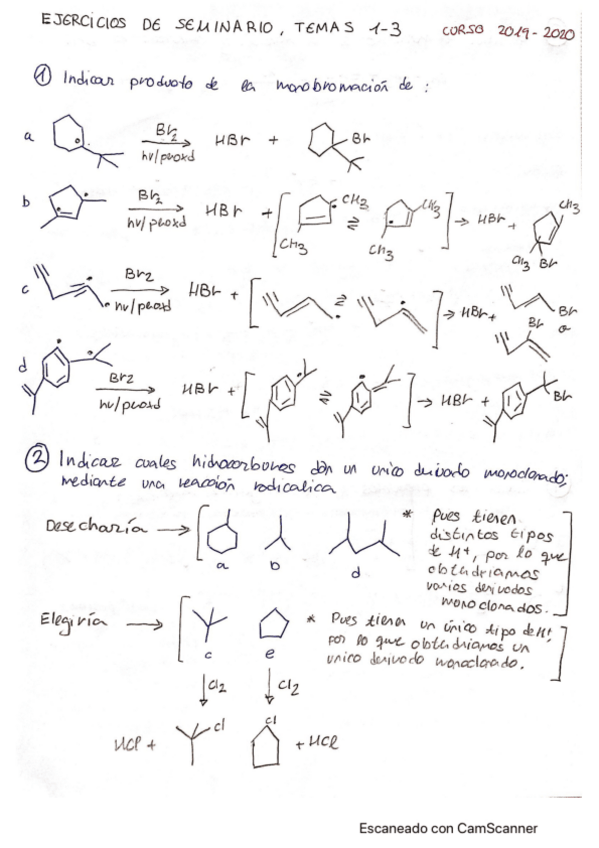 EJERCICIOS DE SEMINARIO, TEMAS 1-3 CURSO 2019-2020
① Indicar producto de la monobromación de :
a Br2 hν/peroxd HBr + Br
b Br2 hν/peroxd HBr + [ CH3 CH3 ⇌ CH3 CH3 ] → HBr + CH3 CH3 Br
c Br2 hν/peroxd HBr + [ ⇌ ] → HBr + Br o Br
d Br2 hν/peroxd HBr + [ ⇌ ] → HBr + Br
② Indicar cuales hidrocarburos dan un unico derivado monoclorado;
mediante una reacción radicalica
Desecharía → [ a b d
* Pues tienen
distintos tipos
de H+, por lo que
obtendriamos
varios derivados
monoclorados.
Elegiría → [ c e
* Pues tienen un único tipo de H+
por lo que obtendriamos un
unico derivado monoclorado.
↓Cl2 ↓Cl2
HCl + Cl Cl + HCl
Escaneado con CamScanner